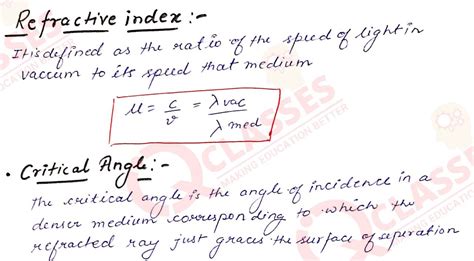 Refractive index:-
It is defined as the ratio of the speed of light in
vaccum to its speed that medium
μ = c/v = λvac/λmed
• Critical Angle:-
The critical angle is the angle of incidence in a
denser medium corresponding to which the
refracted ray just graces the surface of seperation
QCLASSES
MAKING EDUCATION BETTER